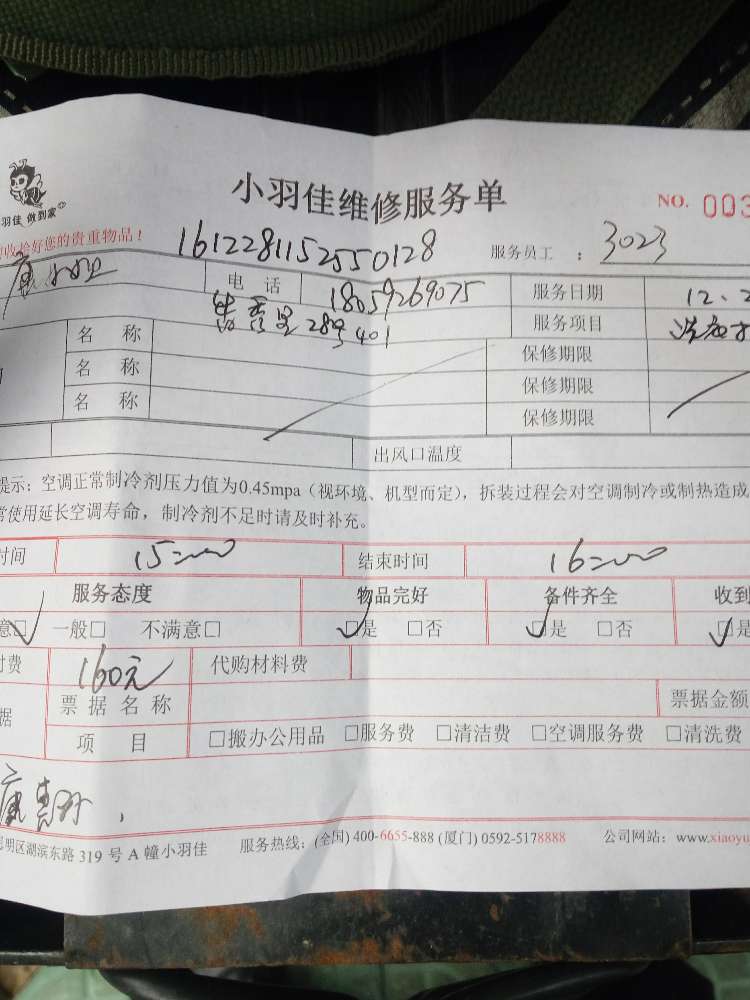 小羽佳维修服务单
NO. 003
羽佳 做到家
收拾好您的贵重物品！
1612281152550128
服务员工 ： 3023
康
电 话 18059269075 服务日期 12.2
289号401
名 称 服务项目 洗
名 称 保修期限
名 称 保修期限
保修期限
出风口温度
提示：空调正常制冷剂压力值为0.45mpa（视环境、机型而定），拆装过程会对空调制冷或制热造成
常使用延长空调寿命，制冷剂不足时请及时补充。
时间 15:00 结束时间 16:00
服务态度 物品完好 备件齐全 收到
意□ 一般□ 不满意□ □是 □否 □是 □否 □是
付费 160元 代购材料费
据 票据名称 票据金额
项 目 □搬办公用品 □服务费 □清洁费 □空调服务费 □清洗费
康
明区湖滨东路 319 号 A 幢小羽佳 服务热线：(全国) 400-6655-888 (厦门) 0592-5178888 公司网站：www.xiaoyu